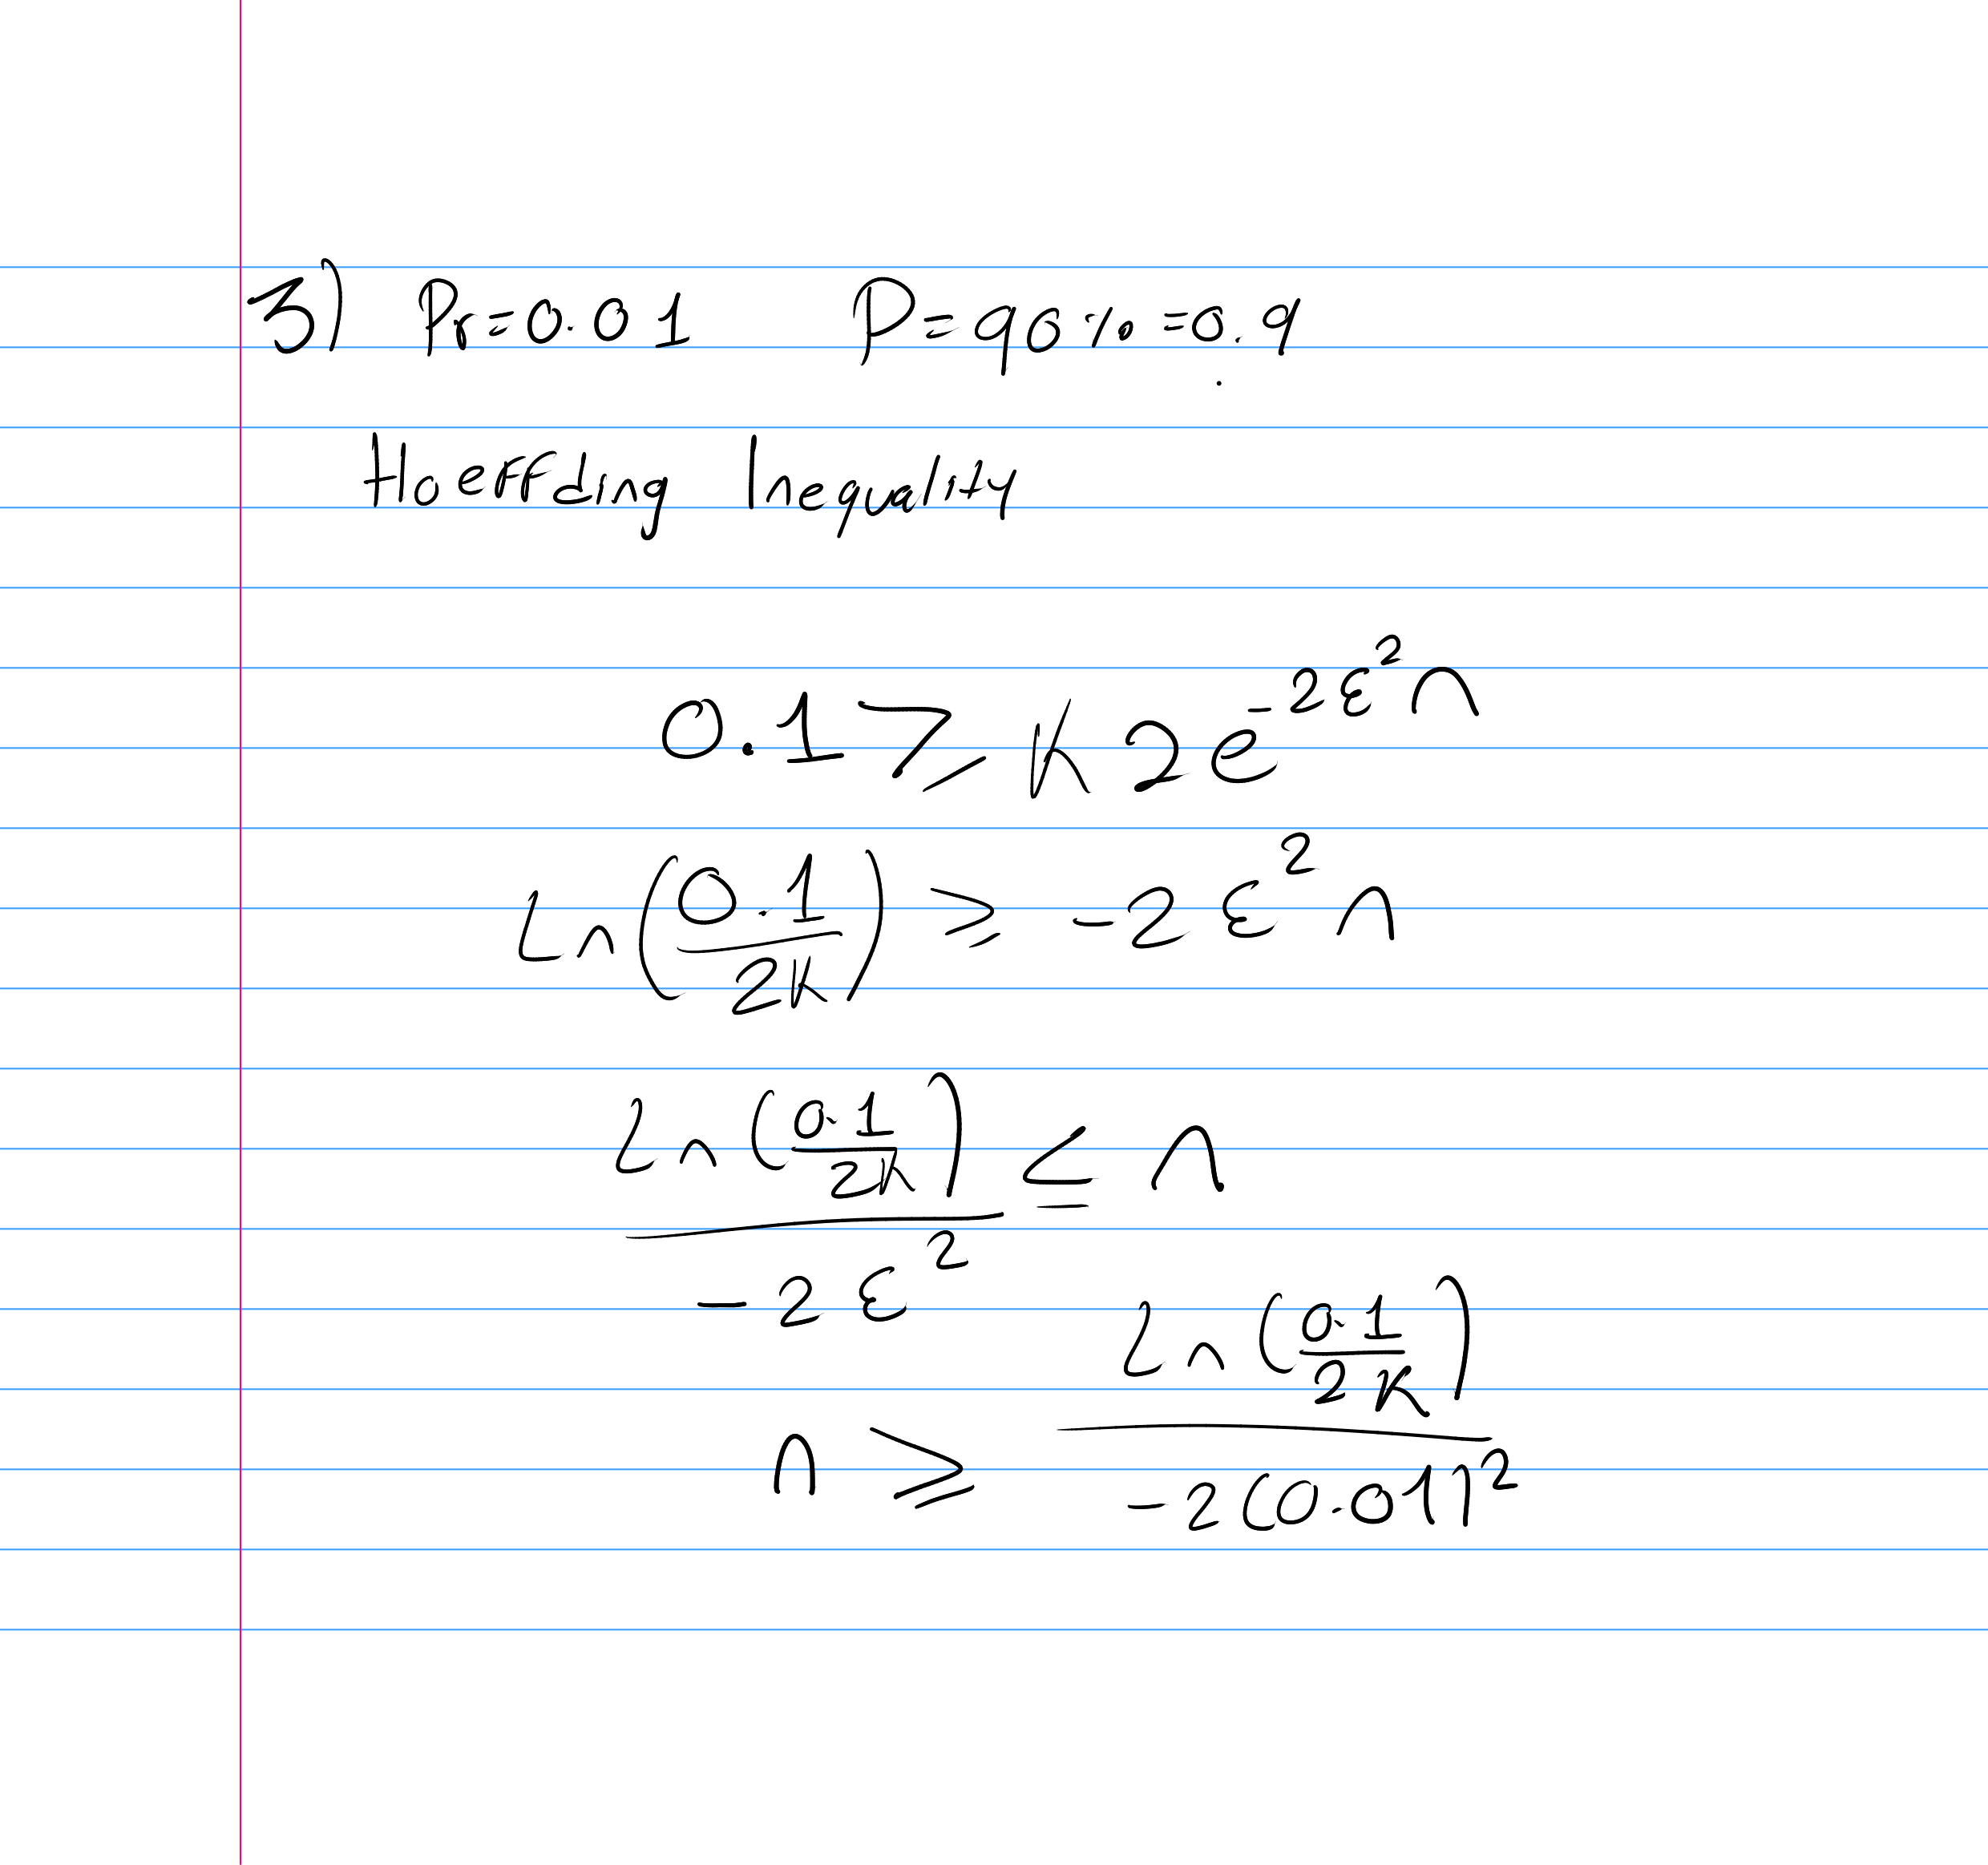 3) Pr=0.01 P=90%=0.9
Hoeffding Inequality
0.1 ≥ K 2e^{-2ε²n}
Ln(0.1/2K) ≥ -2ε²n
Ln(0.1/2K)/-2ε² ≤ n
n ≥ Ln(0.1/2K)/-2(0.01)²